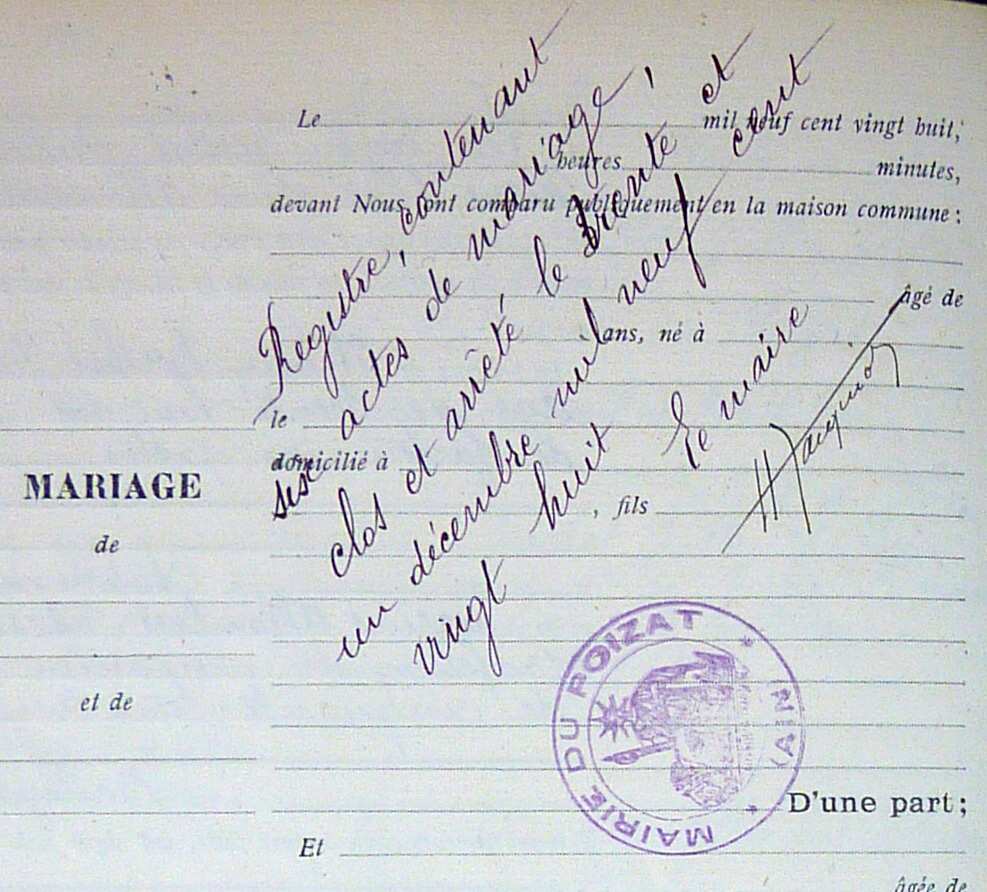 Le mil neuf cent vingt huit,
heures minutes,
devant Nous ont comparu publiquement en la maison commune :
âgé de
ans, né à
le
domicilié à
, fils
MARIAGE
de
et de
D'une part;
Et
âgée de
Registre, contenant
six actes de mariage,
clos et arrêté, le trente et
un décembre mil neuf cent
vingt huit
Le maire
MAIRIE DU POIZAT
* (AIN) *